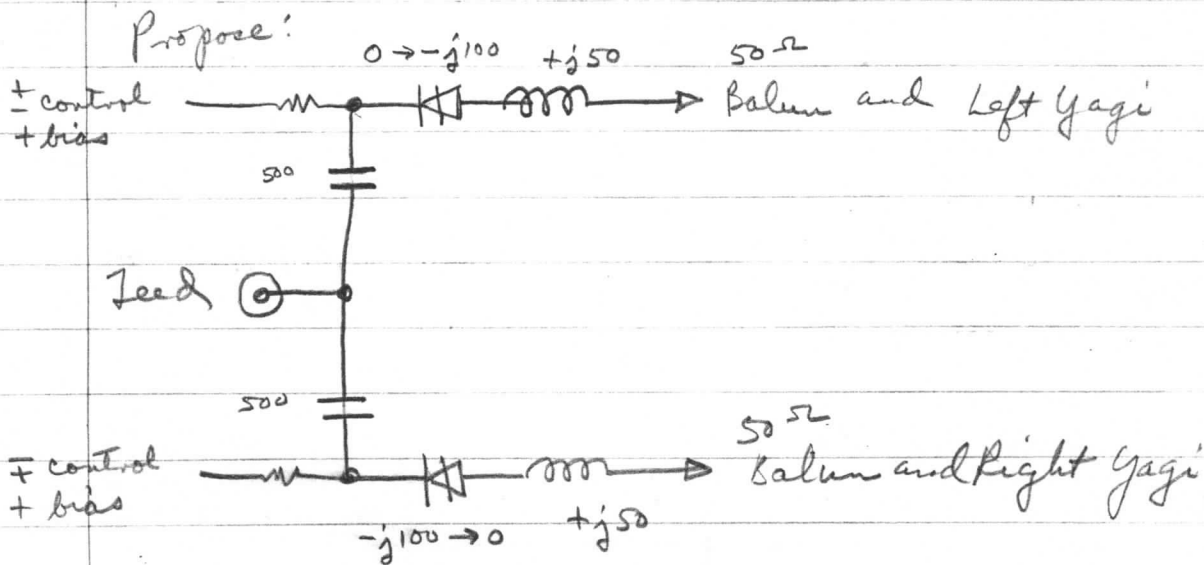 Propose:
0 → -j100
+j50
50 Ω
± control
+ bias
Balun and Left Yagi
500
Feed
500
50 Ω
∓ control
+ bias
Balun and Right Yagi
-j100 → 0
+j50